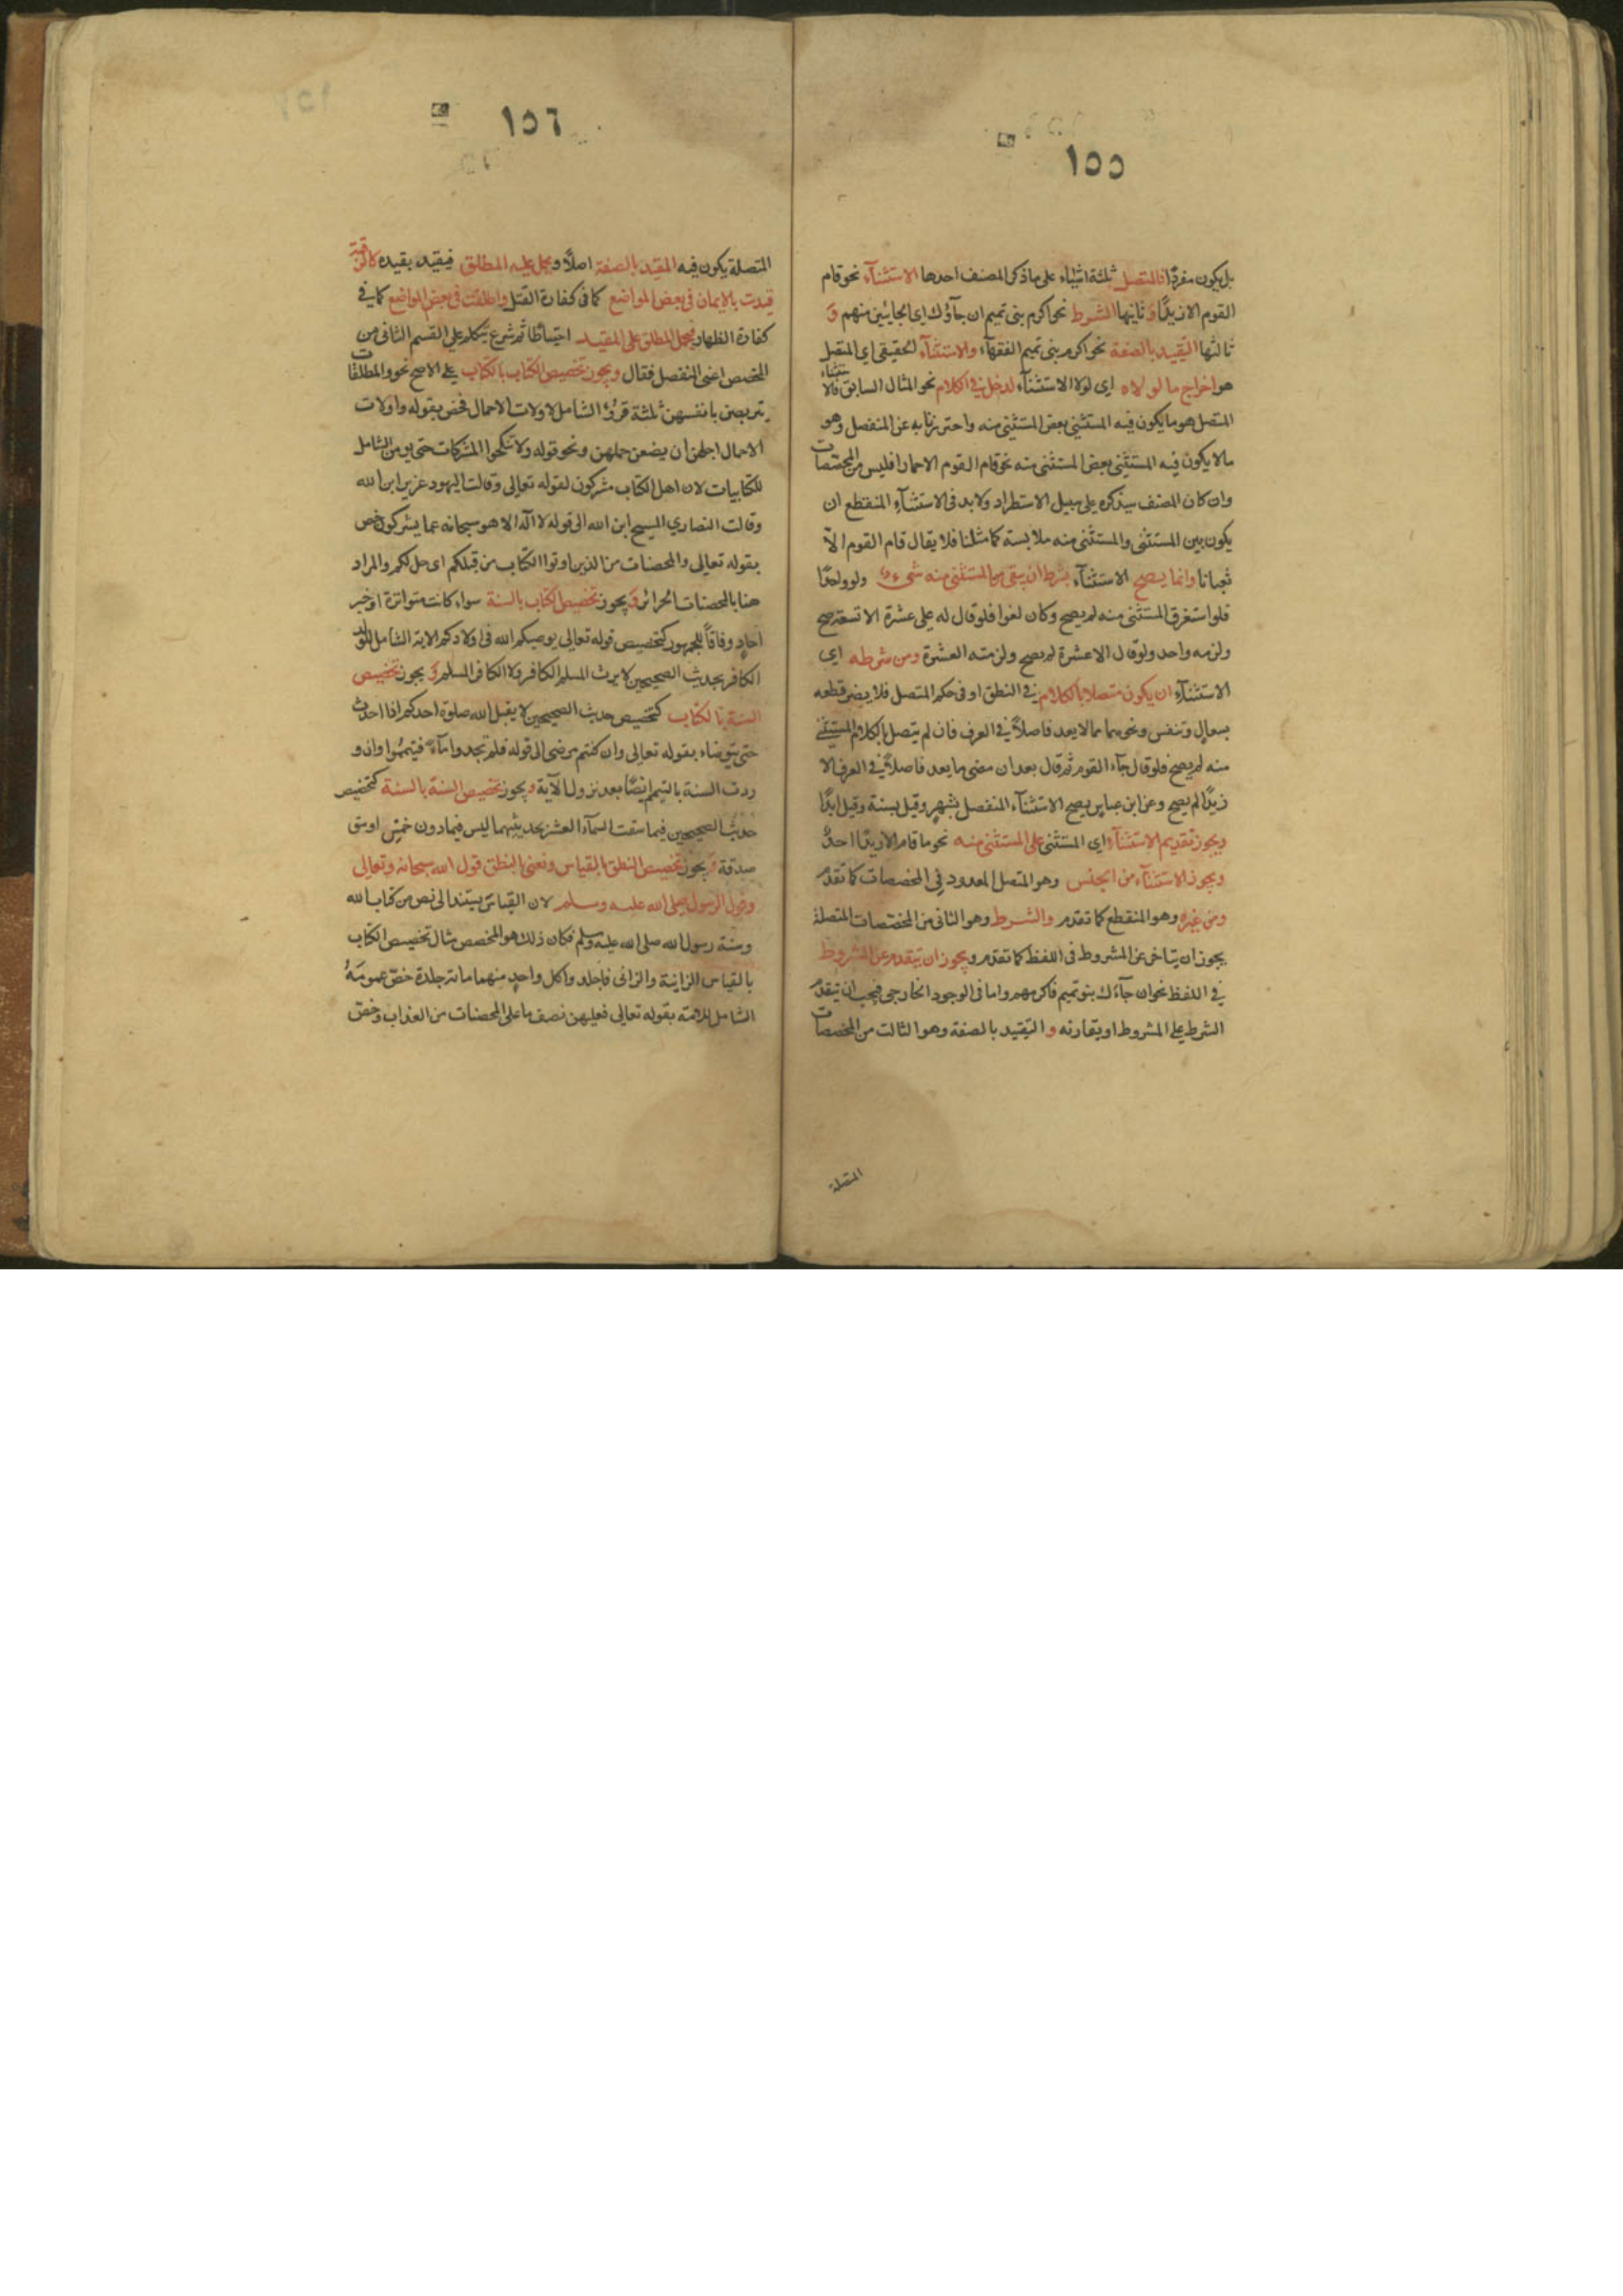 ١٥٥
بل يكون مفردًا فالمتصل ثلثة اشياء على ما ذكر المصنف احدها الاستثنآء نحو قام
القوم الا زيدًا وَثانيها الشرط نحو اكرم بنى تميم ان جآؤك اى الجايئين منهم وَ
ثالثها التقييد بالصفة نحو اكرم بنى تميم الفقهآء والاستثنآء الحقيقى اى المتصل
هو اخراج ما لو لاه اى لولا الاستثنآء لدخل في الكلام نحو المثال السابق فالاستثناء
المتصل هو ما يكون فيه المستثنى بعض المستثنى منه واحترز به عن المنفصل وهو
مالا يكون فيه المستثنى بعض المستثنى منه نحو قام القوم الا حمارا فليس من المخصصات
وان كان المصنف سيذكره على سبيل الاستطراد ولا بد فى الاستثنآء المنقطع ان
يكون بين المستثنى والمستثنى منه ملابسة كما مثلنا فلا يقال قام القوم الاّ
ثعبانا وانما يصح الاستثنآء بشرط ان يبقى من المستثنى منه شىء ولو واحدًا
فلو استغرق المستثنى منه لم يصح وكان لغوا فلو قال له على عشرة الا تسعة صح
ولزمه واحد ولو قال الا عشرة لم يصح ولزمته العشرة ومن شرطه اى
الاستثنآء ان يكون متصلا بالكلام في النطق او فى حكم المتصل فلا يضر قطعه
بسعالٍ وتنفس ونحوهما مما لا يعد فاصلاً في العرف فان لم يتصل بالكلام المستثنى
منه لم يصح فلو قال جآء القوم ثم قال بعد ان مضى ما يعد فاصلاً في العرف الا
زيدًا لم يصح وعن ابن عباس يصح الاستثنآء المنفصل بشهرٍ وقيل بسنة وقيل ابدًا
ويجوز تقديم الاستثنآء اى المستثنى على المستثنى منه نحو ما قام الا زيدًا احدٌ
ويجوز الاستثنآء من الجنس وهو المتصل المعدود في المخصصات كما تقدم
ومن غيره وهو المنقطع كما تقدم والشرط وهو الثانى من المخصصات المتصلة
يجوز ان يتاخر عن المشروط فى اللفظ كما تقدم ويجوز ان يتقدم عن المشروط
في اللفظ نحو ان جآءك بنو تميم فاكرمهم واما فى الوجود الخارجى فيجب ان يتقدم
الشرط على المشروط او يقارنه و التقييد بالصفة وهو الثالث من المخصصات
المتصلة
١٥٦
المتصلة يكون فيه المقيد بالصفة اصلاً ويحمل عليه المطلق فيقيد بقيده كالرقبة
قيدت بالايمان فى بعض المواضع كما فى كفارة القتل واطلقت فى بعض المواضع كما في
كفارة الظهار فيحمل المطلق على المقيد احتياطًا ثم شرع يتكلم على القسم الثانى من
المخصص اعنى المنفصل فقال ويجوز تخصيص الكتاب بالكتاب على الاصح نحو والمطلقات
يتربصن بانفسهن ثلثة قروُء الشامل لاولات الاحمال فخص بقوله واولات
الاحمال اجلهن ان يضعن حملهن ونحو قوله ولا تنكحوا المشركات حتى يومن الشامل
للكتابيات لان اهل الكتاب مشركون لقوله تعالى وقالت اليهود عزير ابن الله
وقالت النصارى المسيح ابن الله الى قوله لا اله الا هو سبحانه عما يشركون خص
بقوله تعالى والمحصنات من الذين اوتوا الكتاب من قبلكم اى حل لكم والمراد
هنا بالمحصنات الحرائر وَيجوز تخصيص الكتاب بالسنة سواء كانت متواترة او خبر
آحادٍ وفاقًا للجمهور كتخصيص قوله تعالى يوصيكم الله فى اولادكم الاية الشامل للولد
الكافر بحديث الصحيحين لا يرث المسلم الكافر ولا الكافر المسلم وَيجوز تخصيص
السنة بالكتاب كتخصيص حديث الصحيحين لا يقبل الله صلوة احدكم اذا احدث
حتى يتوضاء بقوله تعالى وان كنتم مرضى الى قوله فلم تجدوا مآءً فتيمموا وان و
ردت السنة بالتيمم ايضًا بعد نزول الآية ويجوز تخصيص السنة بالسنة كتخصيص
حديث الصحيحين فيما سقت السمآء العشر بحديثهما ليس فيما دون خمس اوسق
صدقة وَيجوز تخصيص النطق بالقياس ونعنى بالنطق قول الله سبحانه وتعالى
وقول الرسول صلى الله عليه وسلم لان القياس يستند الى نص من كتاب الله
وسنة رسول الله صلى الله عليه وسلم فكان ذلك هو المخصص مثال تخصيص الكتاب
بالقياس الزانية والزانى فاجلدوا كل واحدٍ منهما ماىة جلدة خصّ عمومَهُ
الشامل للامة بقوله تعالى فعليهن نصف ما على المحصنات من العذاب وخصّ